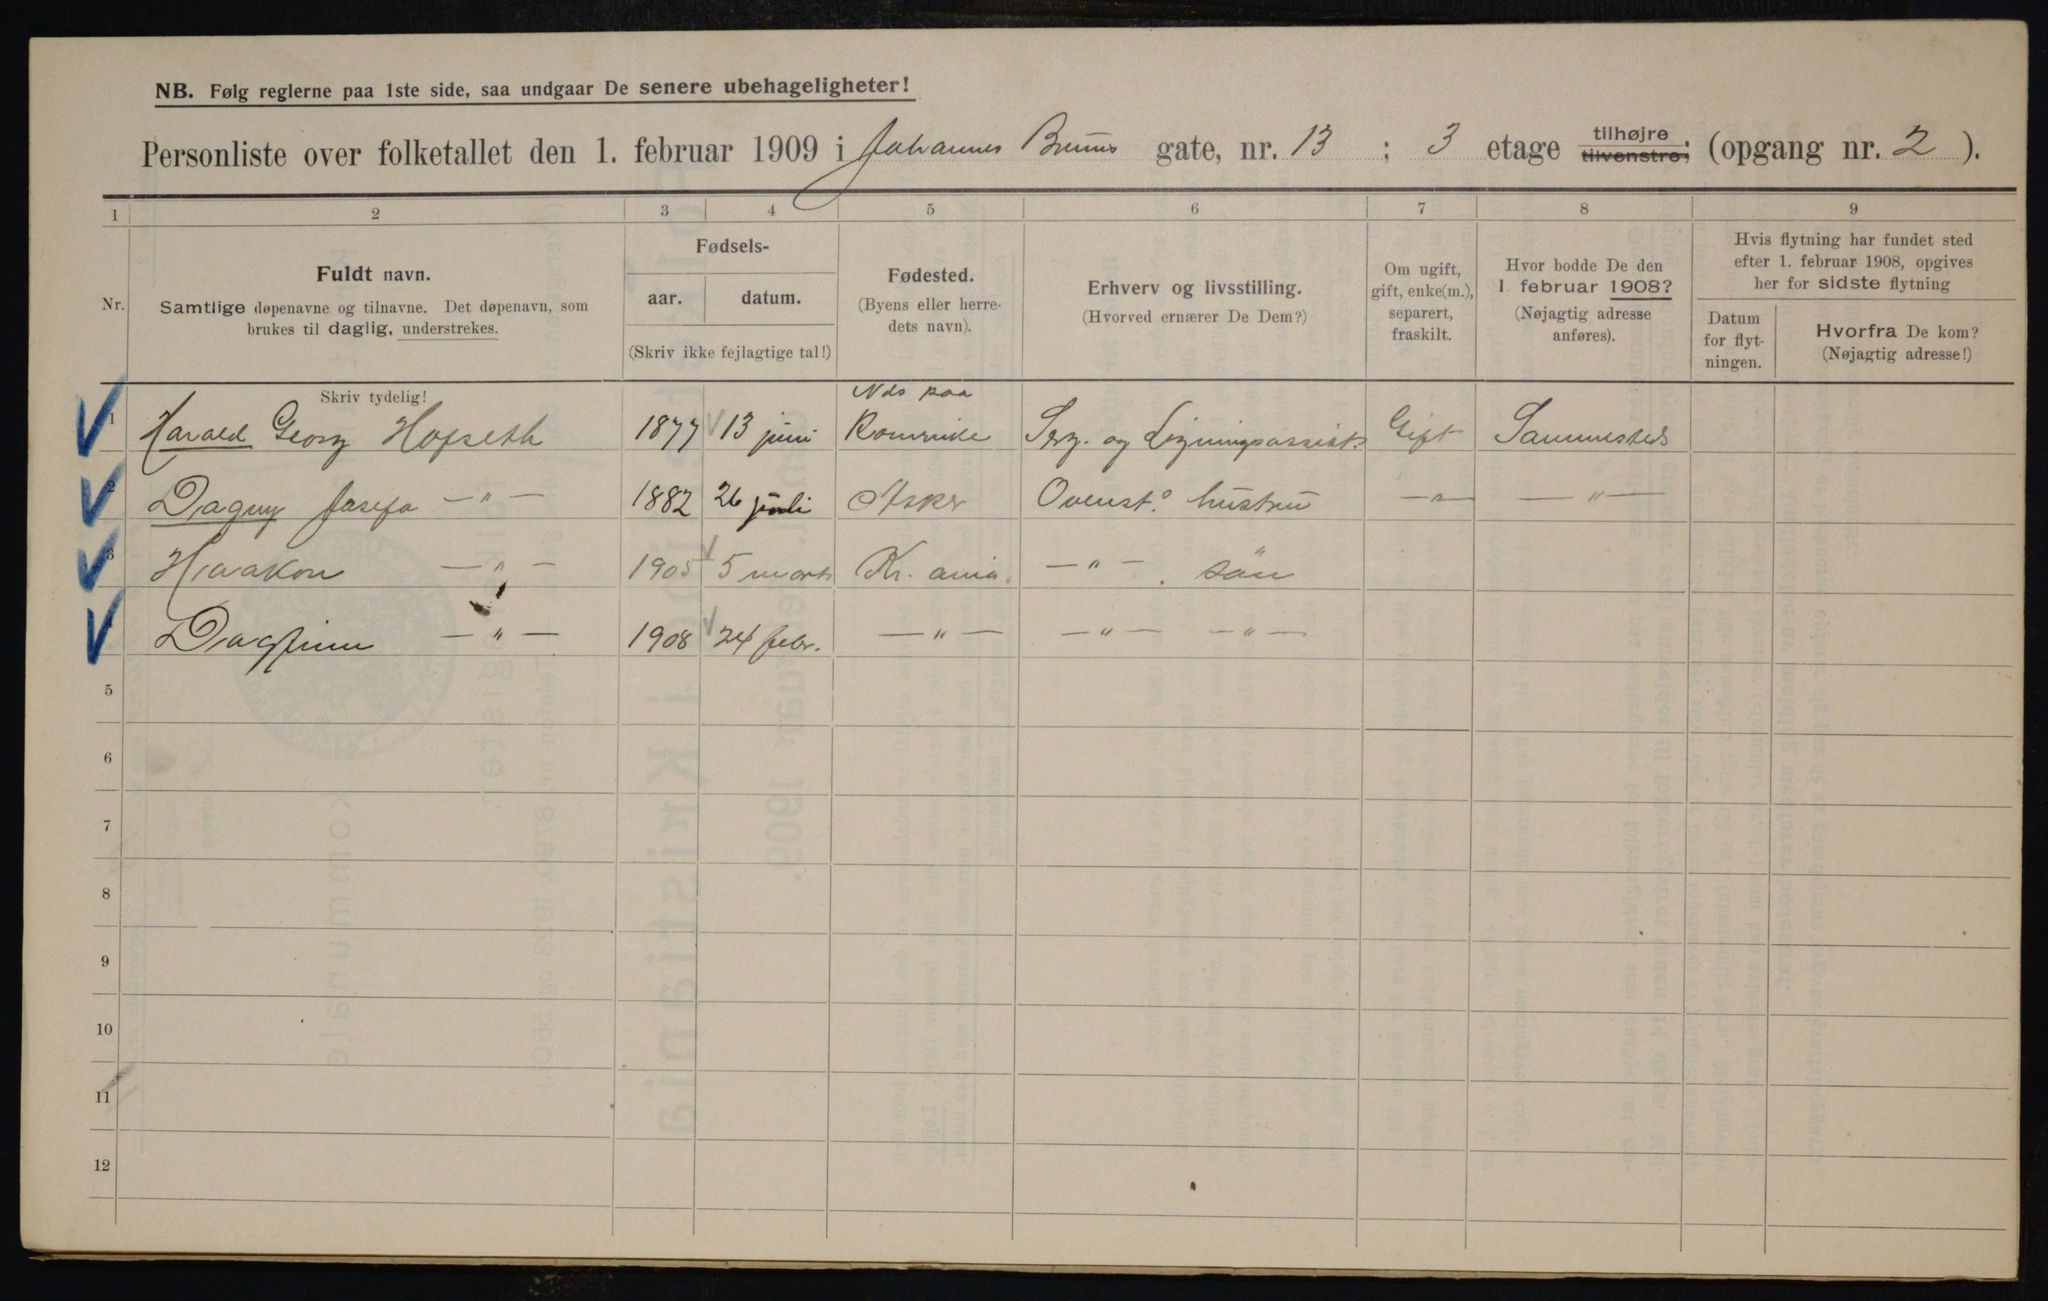 NB. Følg reglerne paa 1ste side, saa undgaar De senere ubehageligheter!
Personliste over folketallet den 1. februar 1909 i Johannes Bruns gate, nr. 13 ; 3 etage tilhøjre tilvenstre; (opgang nr. 2 ).
1 2 3 4 5 6 7 8 9
Nr.
Fuldt navn.
Samtlige døpenavne og tilnavne. Det døpenavn, som
brukes til daglig, understrekes.
Fødsels-
aar. datum.
(Skriv ikke fejlagtige tal!)
Fødested.
(Byens eller herre-
dets navn).
Erhverv og livsstilling.
(Hvorved ernærer De Dem?)
Om ugift,
gift, enke(m.),
separert,
fraskilt.
Hvor bodde De den
1. februar 1908?
(Nøjagtig adresse
anføres).
Hvis flytning har fundet sted
efter 1. februar 1908, opgives
her for sidste flytning
Datum
for flyt-
ningen.
Hvorfra De kom?
(Nøjagtig adresse!)
Skriv tydelig!
Nds paa
1 Harald Georg Hofseth 1877 13 juni Romerike Serg. og Ligningsassist. Gift Sammesteds
2 Dagny Josefa —"— 1882 26 juli Asker Ovenst. hustru —"— —"—
3 Haakon —"— 1905 5 marts Kr.ania —"— søn
Dagfinn —"— 1908 24 febr. —"— —"— —"—
5
6
7
8
9
10
11
12